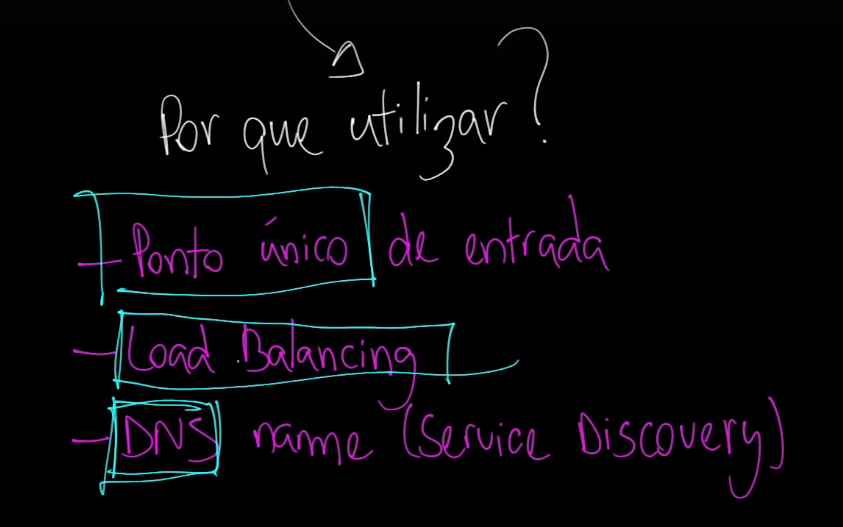 Por que utilizar?
- Ponto único de entrada
- Load Balancing
- DNS name (Service Discovery)